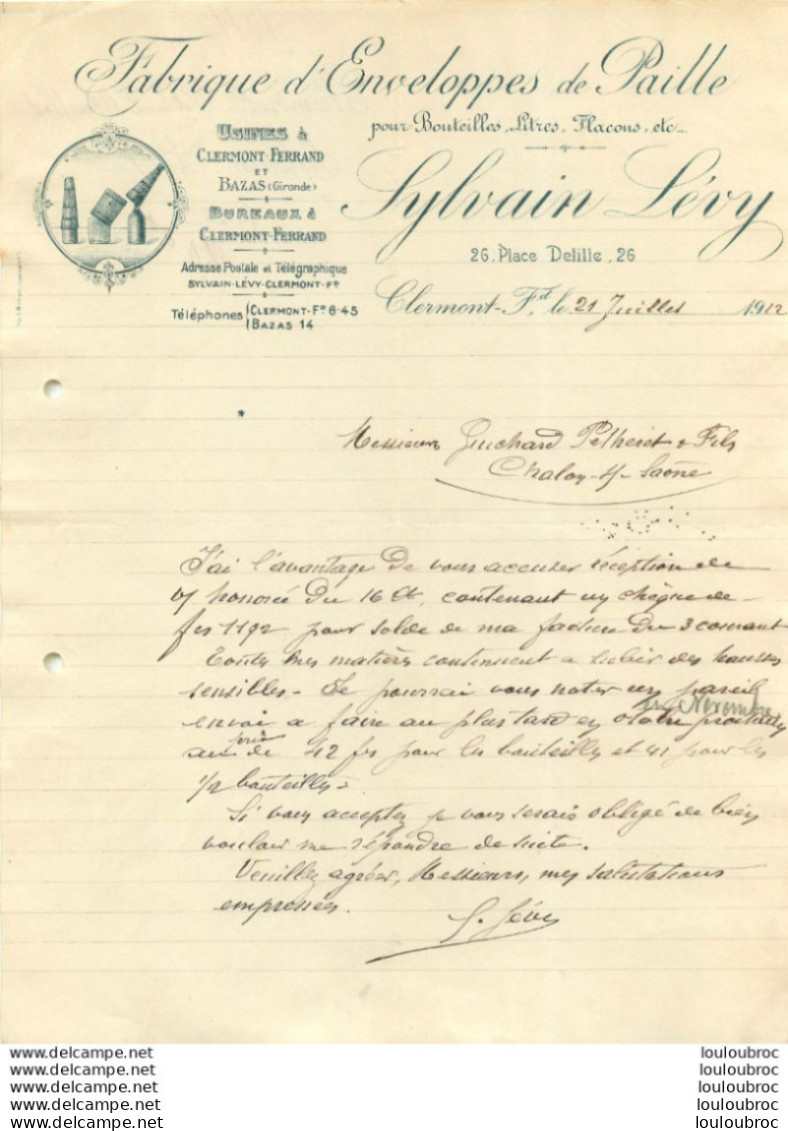 Fabrique d'Enveloppes de Paille
pour Bouteilles, Litres, Flacons, etc...
Sylvain Lévy
26, Place Delille, 26
USINES à
CLERMONT-FERRAND
ET
BAZAS (Gironde)
BUREAUX à
CLERMONT-FERRAND
Adresse Postale et Télégraphique
SYLVAIN-LÉVY-CLERMONT-Fd
Téléphones { CLERMONT-Fd 6-45
BAZAS 14
Clermont-Fd, le 21 Juillet 1912
Messieurs Guichard Potheret & Fils
Chalon-s/-Saône
J'ai l'avantage de vous accuser réception de
v/ honorée du 16 Ct, contenant un chèque de
frs 1192 pour solde de ma facture du 3 courant
Toutes mes matières continuent a subir des hausses
sensibles - Je pourrai vous noter un pareil
envoi a faire au plus tard en octobre prochain
ou Novembre
au prix de 42 frs pour les bouteilles et 41 pour les
1/2 bouteilles -
Si vous acceptez je vous serais obligé de bien
vouloir me répondre de suite.
Veuillez agréer, Messieurs, mes salutations
empressées.
S. Lévy
www.delcampe.net
www.delcampe.net
www.delcampe.net
www.delcampe.net
www.delcampe.net
louloubroc
louloubroc
louloubroc
louloubroc
louloubroc